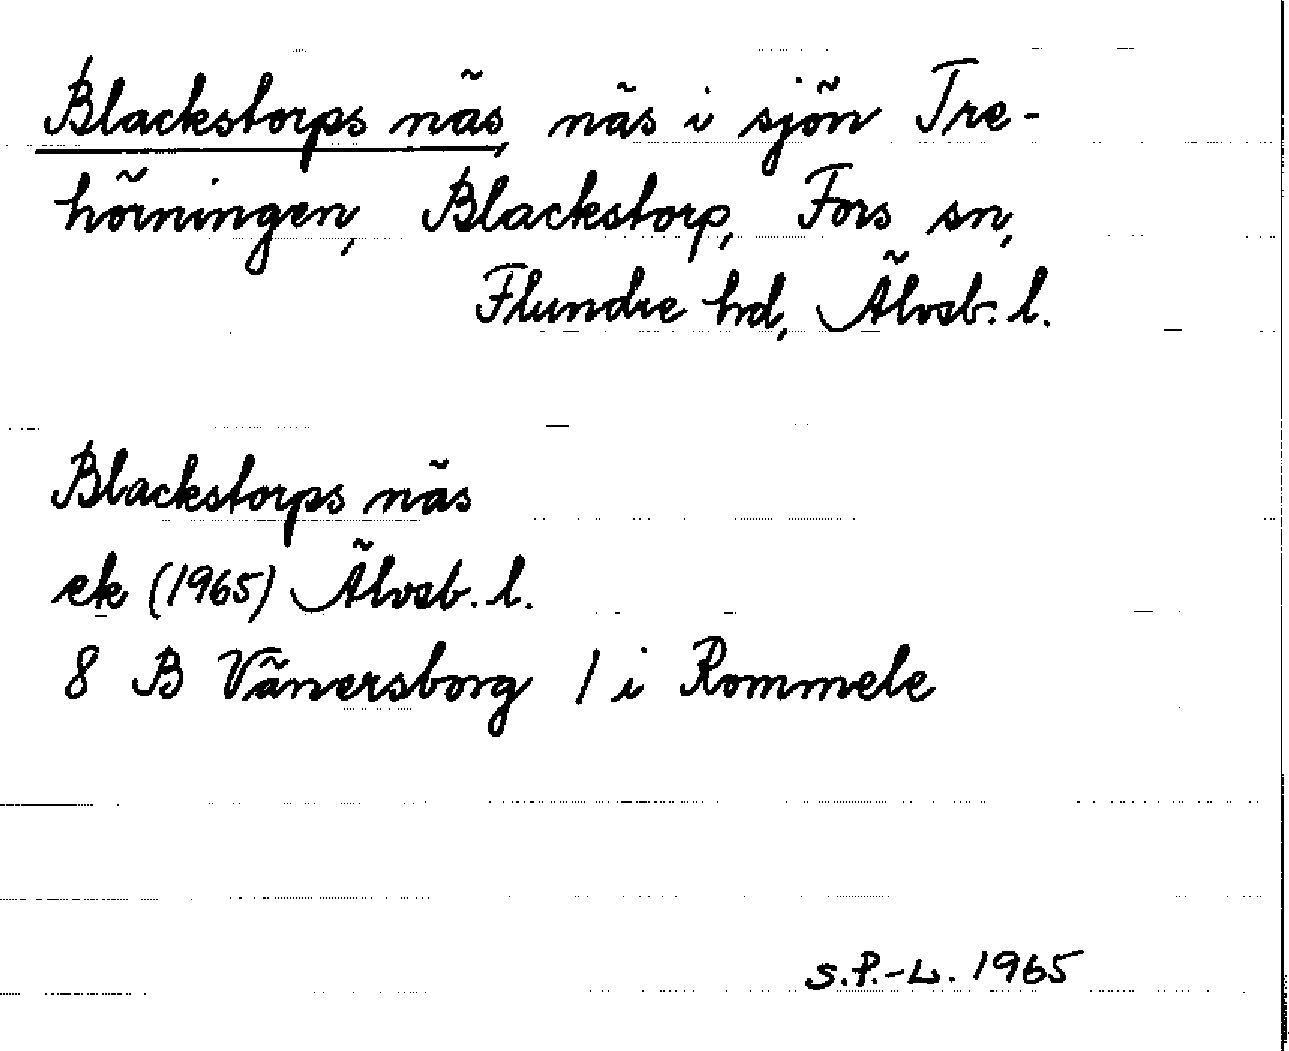 Blackstorps näs, näs i sjön Tre-
hörningen, Blackstorp, Fors sn,
Flundre hd, Älvsb. l.
Blackstorps näs
ek (1965) Älvsb. l.
8 B Vänersborg 1 i Rommele
S.P.-L. 1965